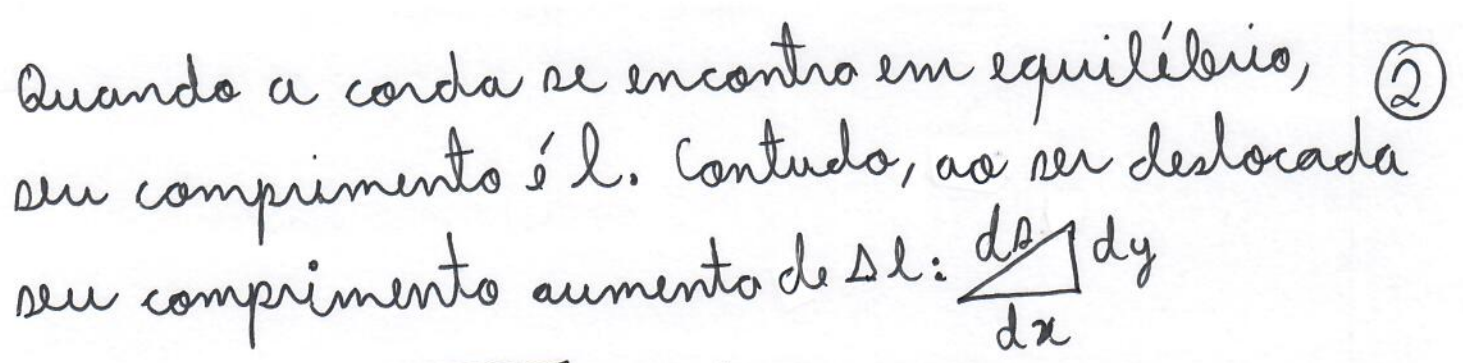 Quando a corda se encontra em equilíbrio, ②
seu comprimento é l. Contudo, ao ser deslocada
seu comprimento aumenta de Δl: ds dy
dx